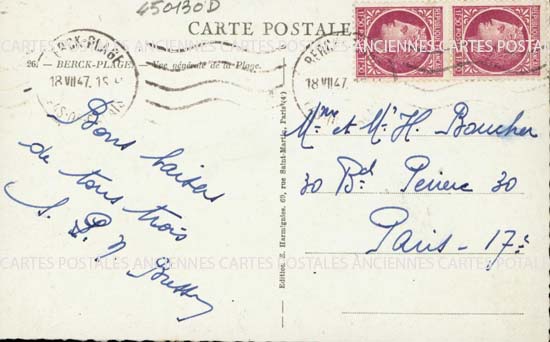 450130D
CARTE POSTALE
26. — BERCK-PLAGE. — Vue générale de la Plage.
BERCK-PLAGE
18 VII 47
PAS-DE-CALAIS
BERCK
18 VII 47
REPUBLIQUE FRANÇAISE
REPUBLIQUE FRANÇAISE
Bons baisers
de tous trois
S. P. N
Edition Z. Harmignies, 69, rue Saint-Martin, Paris (4ᵉ)
Mme et Mr H. Boucher
30 Bd Pereire 30
Paris - 17e
CARTES POSTALES ANCIENNES CARTES POSTALES ANCIENNES
CARTES POSTALES ANCIENNES CARTES POSTALES ANCIENNES CARTES POSTALE